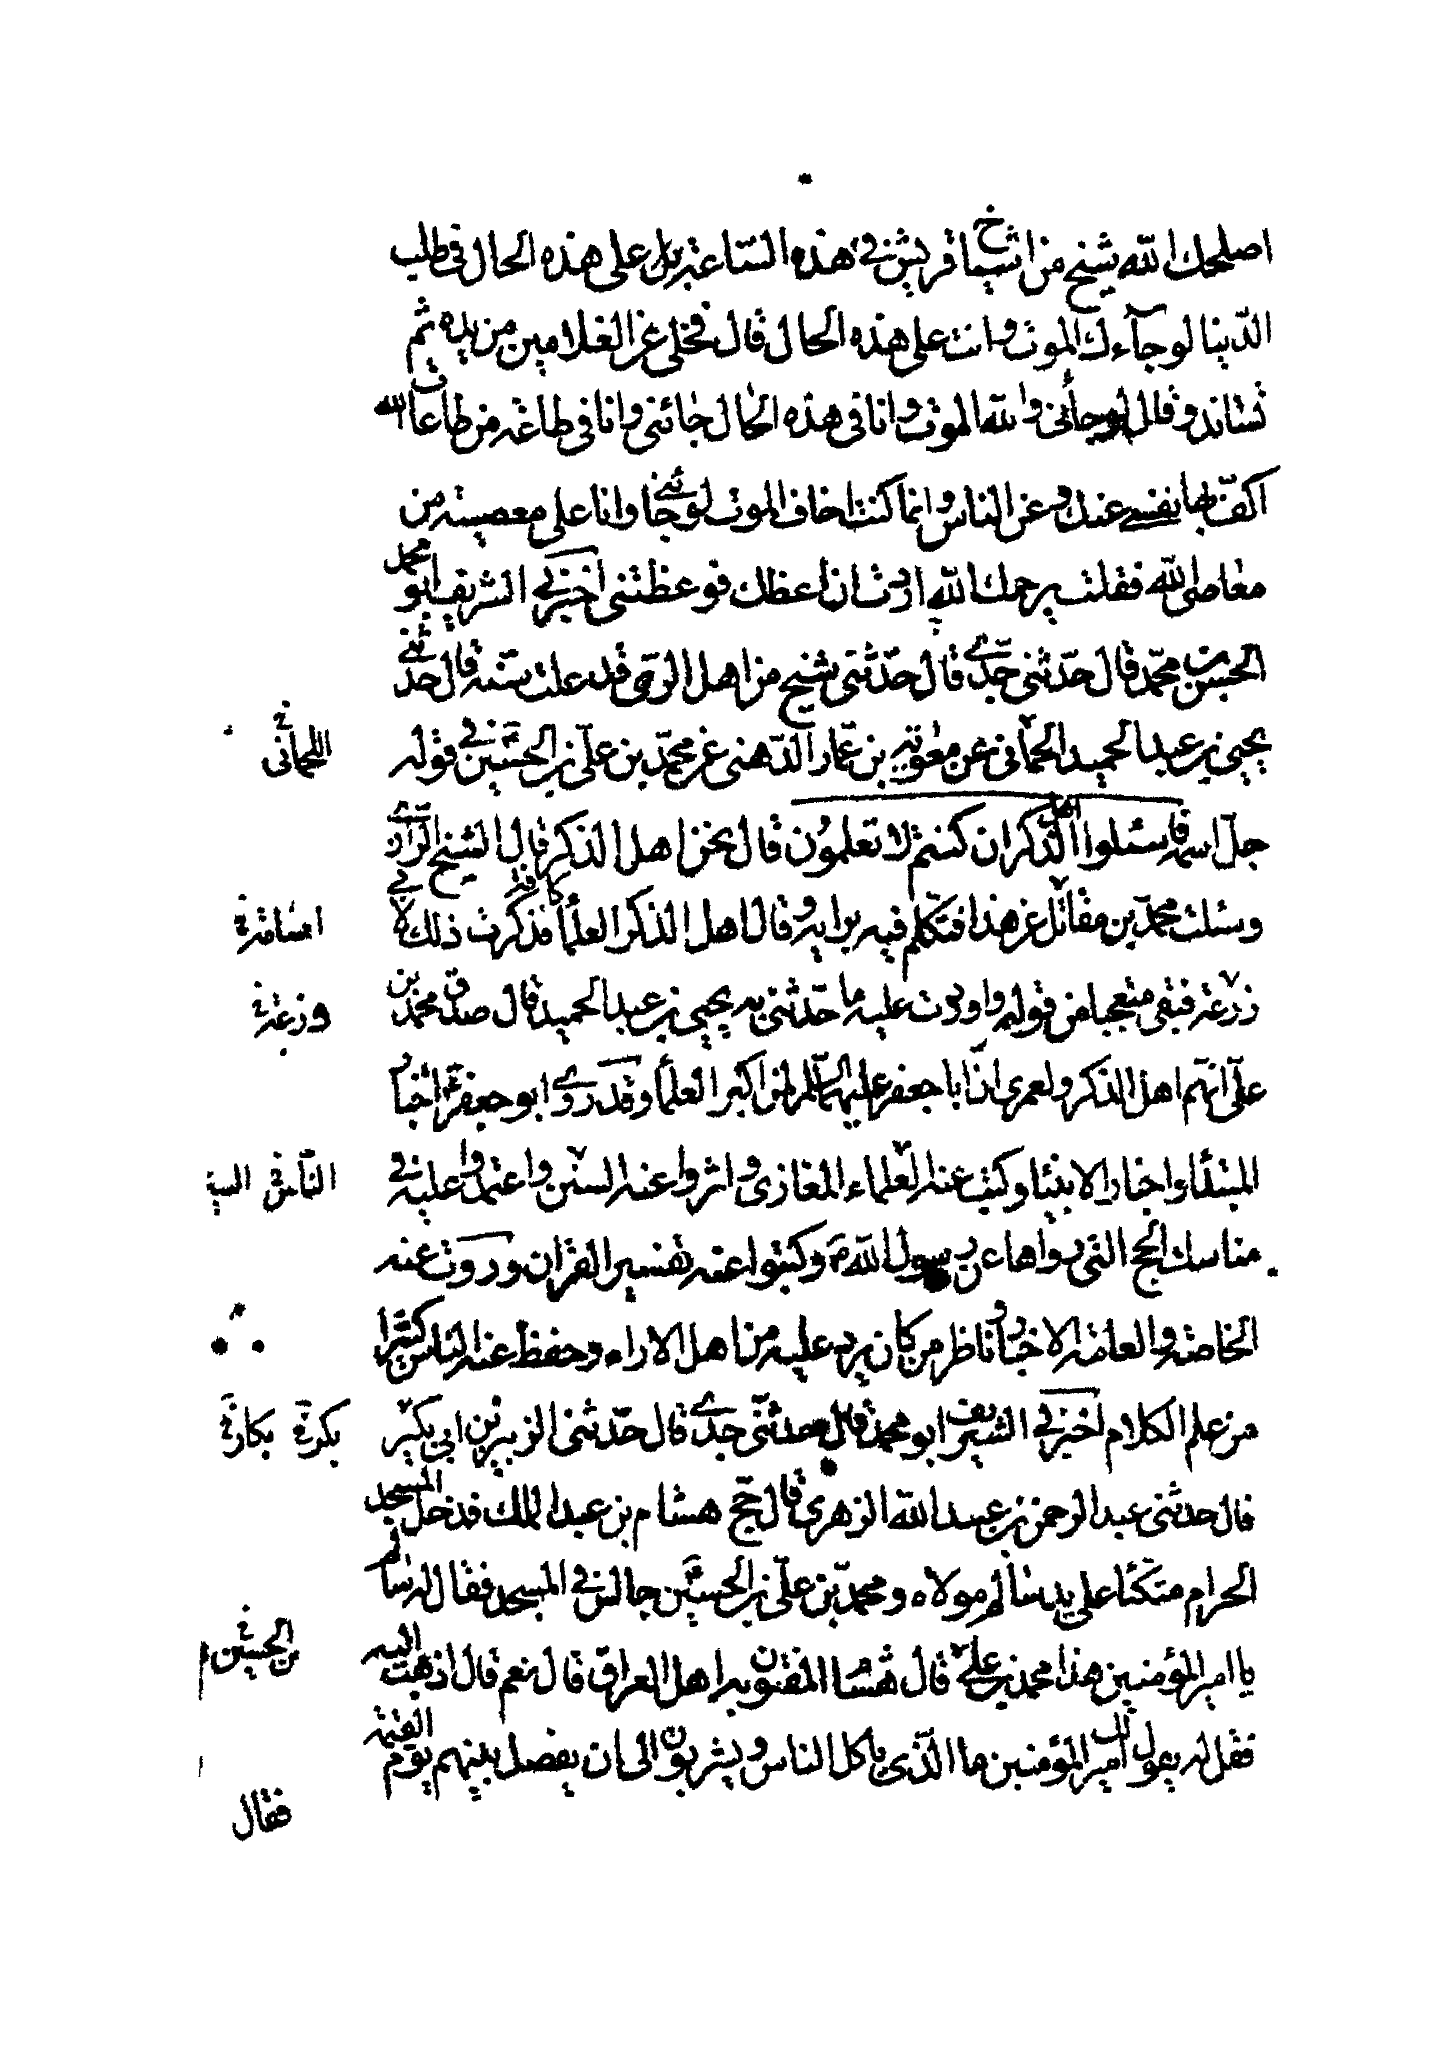 اصلحك الله شيخ من اشياخ قريش في هذه الساعة بل على هذه الحال في طلب
الدنيا لو جآءك الموت وانت على هذه الحال قال فخلى عن الغلامين من يده ثم
تساند وقال لو جائنى والله الموت وانا فى هذه الحال جائنى وانا فى طاعة من طاعات الله
اكف بها نفسي عنك وعن الناس وانما كنت اخاف الموت لو جائني وانا على معصية من
معاصى الله فقلت يرحمك الله اردت ان اعظك فوعظتنى اخبرني الشريف ابو محمد
الحسن بن محمد قال حدثنى جدي قال حدثنى شيخ من اهل الرى قد علت سنه قال حدثني
يحيى بن عبد الحميد الحمانى عن معوية بن عمار الدهنى عن محمد بن على بن الحسين في قوله
اللحمانى خ
جل اسمه فاسئلوا اهل الذكر ان كنتم لا تعلمون قال نحن اهل الذكر قال الشيخ الرازي
وسئلت محمد بن مقاتل عن هذا فتكلم فيه برايه وقال اهل الذكر العلمأ كافة فذكرت ذلك لابي
زرعة فبقى متعجبا من قوله واوردت عليه ما حدثنى به يحيى بن عبد الحميد قال صدق محمد بن
وزرعة خ
على انهم اهل الذكر ولعمرى ان ابا جعفر عليه السلم لمن اكبر العلمأ وقد روي ابو جعفر اخبار
المبتدأ واخبار الانبيئا وكتب عنه العلماء المغازى واثروا عنه السنن واعتمدوا عليه في
الناس خ
مناسك الحج التى رواها عن رسول الله وكتبوا عنه تفسير القران وروت عنه
الخاصة والعامة الاخبار وناظر من كان يرد عليه من اهل الاراء وحفظ عنه الناس كثيرا
من علم الكلام اخبرني الشريف ابو محمد قال حدثنى جدي قال حدثنى الزبير بن ابى بكير
بكرة خ بكار خ
قال حدثنى عبد الرحمن بن عبد الله الزهرى قال حج هشام بن عبد الملك فدخل المسجد
الحرام متكئا على يد سالم مولاه ومحمد بن على بن الحسين جالس في المسجد فقال له سالم
يا امير المؤمنين هذا محمد بن علي قال هشام المفتون به اهل العراق قال نعم قال اذهب اليه
بن الحسين خ
فقل له يقول لك امير المؤمنين ما الذى ياكل الناس ويشربون الى ان يفصل بينهم يوم القيمة
فقال